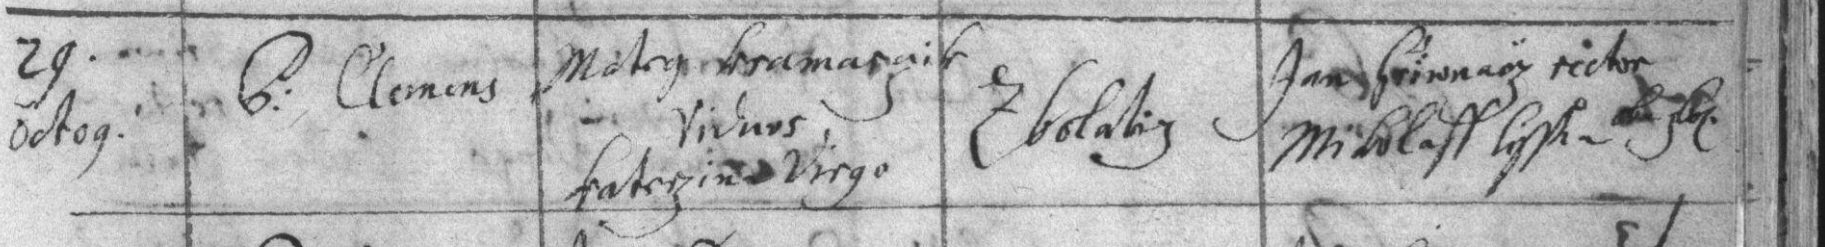 29. Octog.
P. Clemens
Mateg kramarzik
Viduus,
katerzina Virgo
Z bolatiz
Jan rector
Mikolass